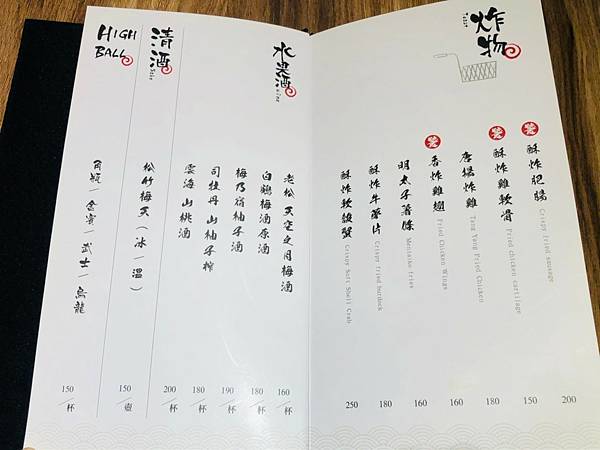 炸物
酥炸肥腸
Crispy fried sausage
200
酥炸雞軟骨
Fried chicken cartilage
150
唐揚炸雞
Tang Yang Fried Chicken
180
香炸雞翅
Fried Chicken Wings
160
明太子薯條
Mentaiko fries
160
酥炸牛蒡片
Crispy fried burdock
180
酥炸軟殼蟹
Crispy Soft Shell Crab
250
水果酒
Wine
老松 天空之月梅酒
160/杯
白鶴梅酒原酒
180/杯
梅乃宿柚子酒
190/杯
司牡丹 山柚子搾
180/杯
雲海 山桃酒
200/杯
清酒
Sake
松竹梅 天(冰|溫)
150/壺
HIGH
BALL
角瓶|金賓|武士|烏龍
150/杯